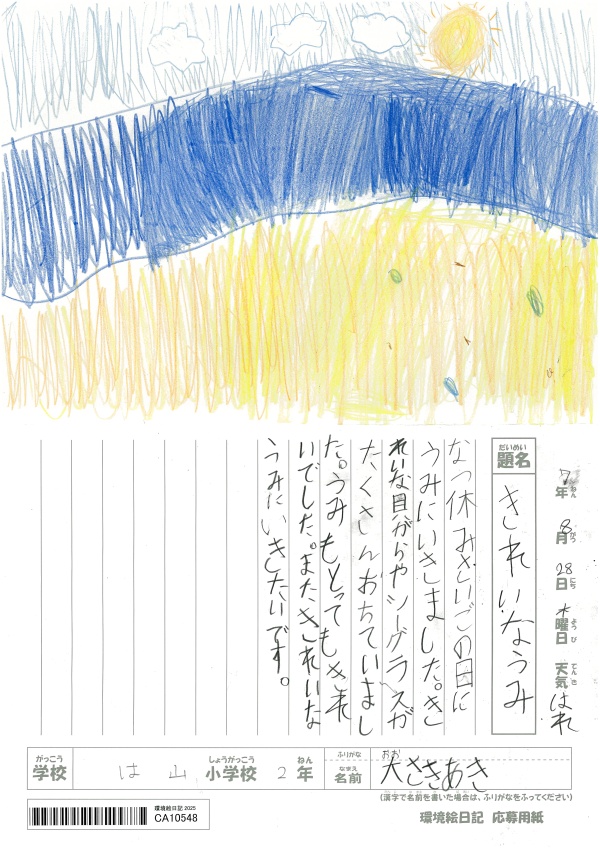 7年 8月 28日 木曜日 天気 はれ
ねん がつ にち ようび てんき
だいめい
題名 きれいなうみ
なつ休みさいごの日に
うみにいきました。き
れいな貝がらやシーグラスが
たくさんおちていまし
た。うみもとってもきれ
いでした。また、きれいな
うみにいきたいです。
がっこう しょうがっこう ねん
学校 は山 小学校 2年
ふりがな おお
なまえ
名前 大さきあき
(漢字で名前を書いた場合は、ふりがなをふってください)
環境絵日記 2025
CA10548
環境絵日記 応募用紙